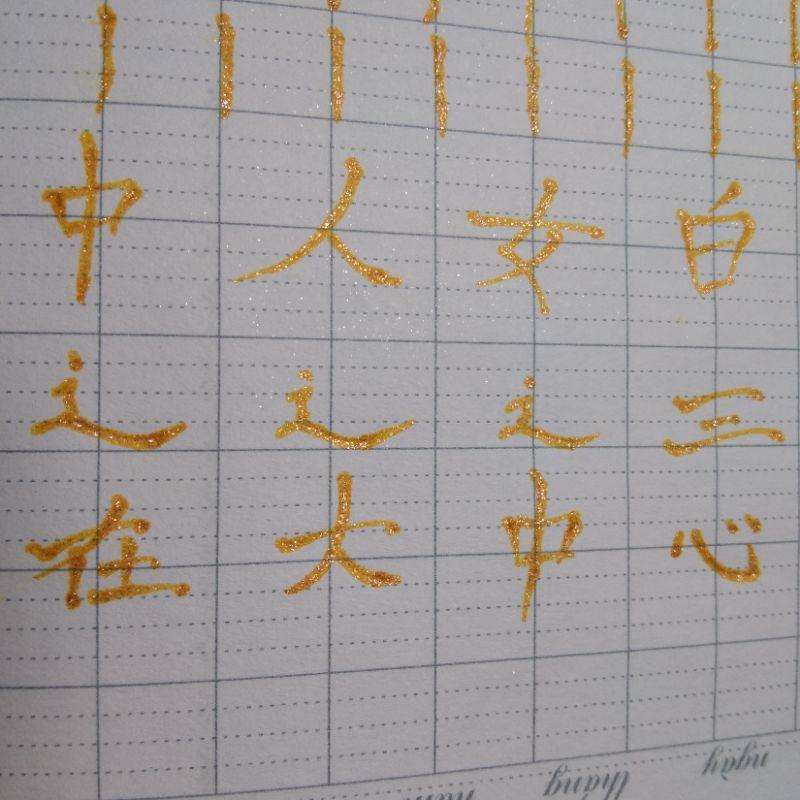 中人女白
辶辶辶三
在大中心
ngày
tháng